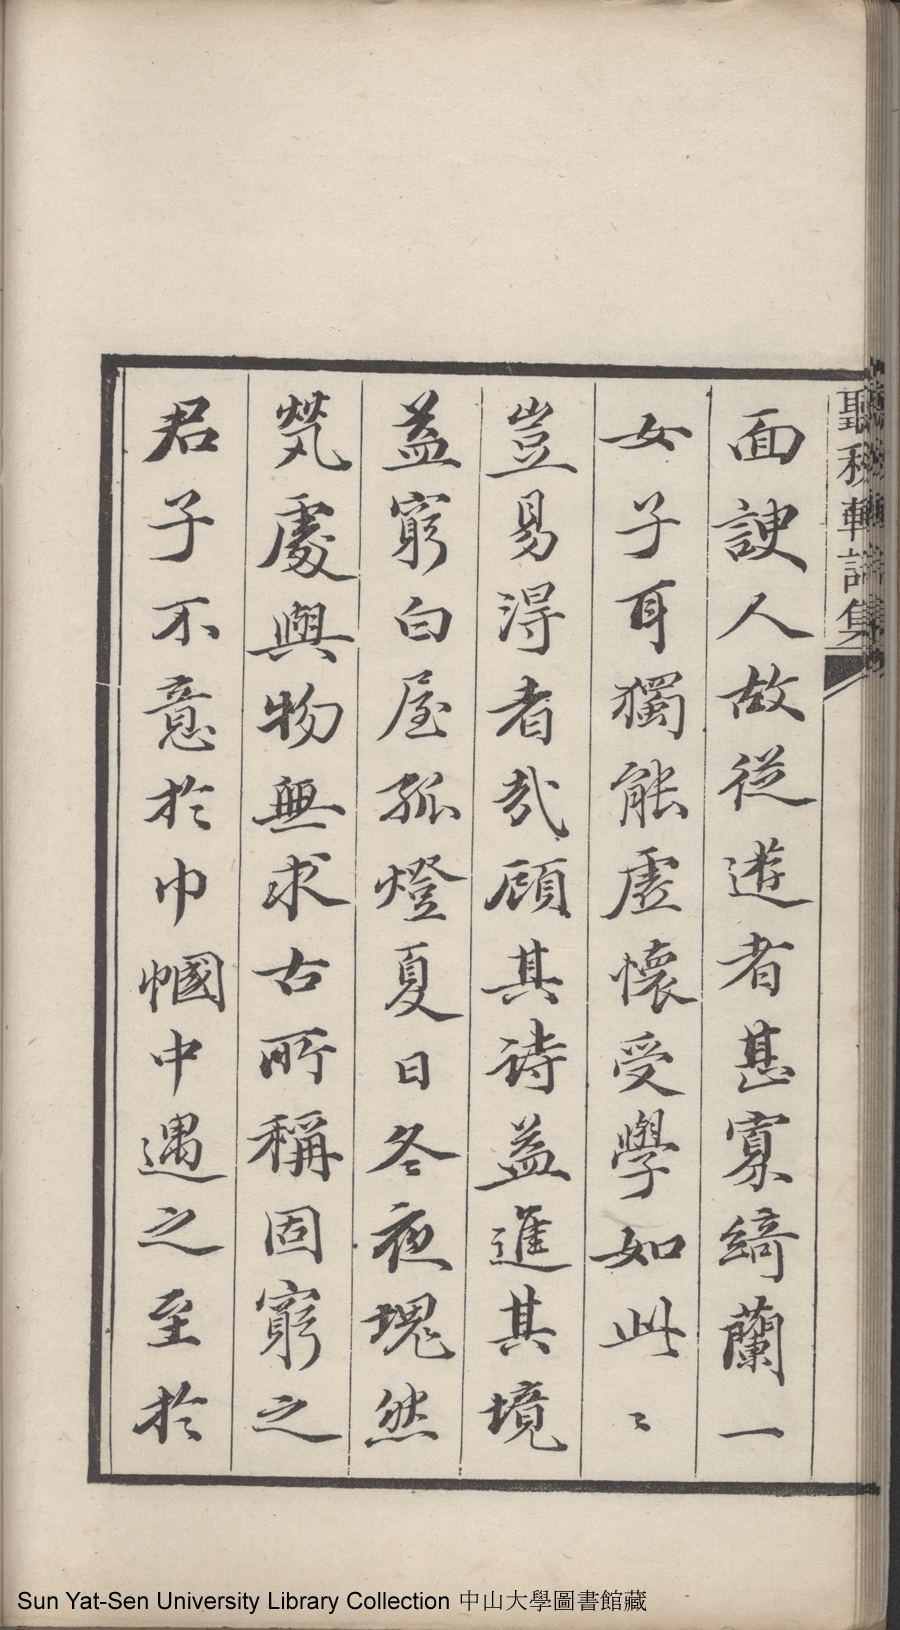 聽秋軒詩集
面諛人故從遊者甚寡綺蘭一
女子耳獨能虛懷受學如此〻
豈易得者哉顧其詩益進其境
益窮白屋孤燈夏日冬夜塊然
煢處與物無求古所稱固窮之
君子不意於巾幗中遇之至於
Sun Yat-Sen University Library Collection 中山大學圖書館藏